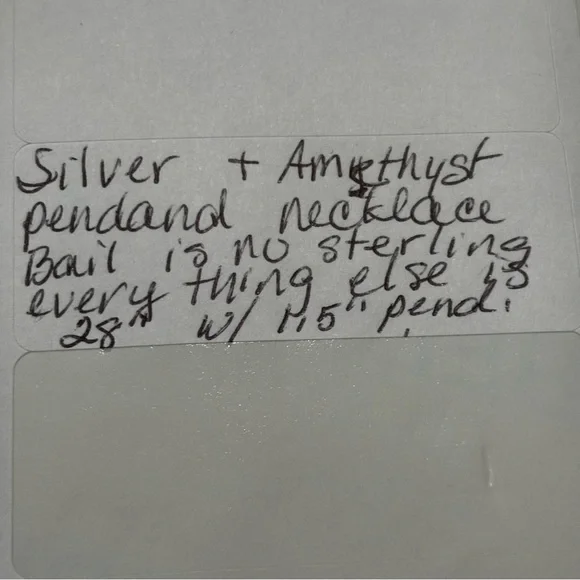 Silver + Amythyst
pendand necklace
Bail is no sterling
every thing else is
28" w/ 1.5" pend.